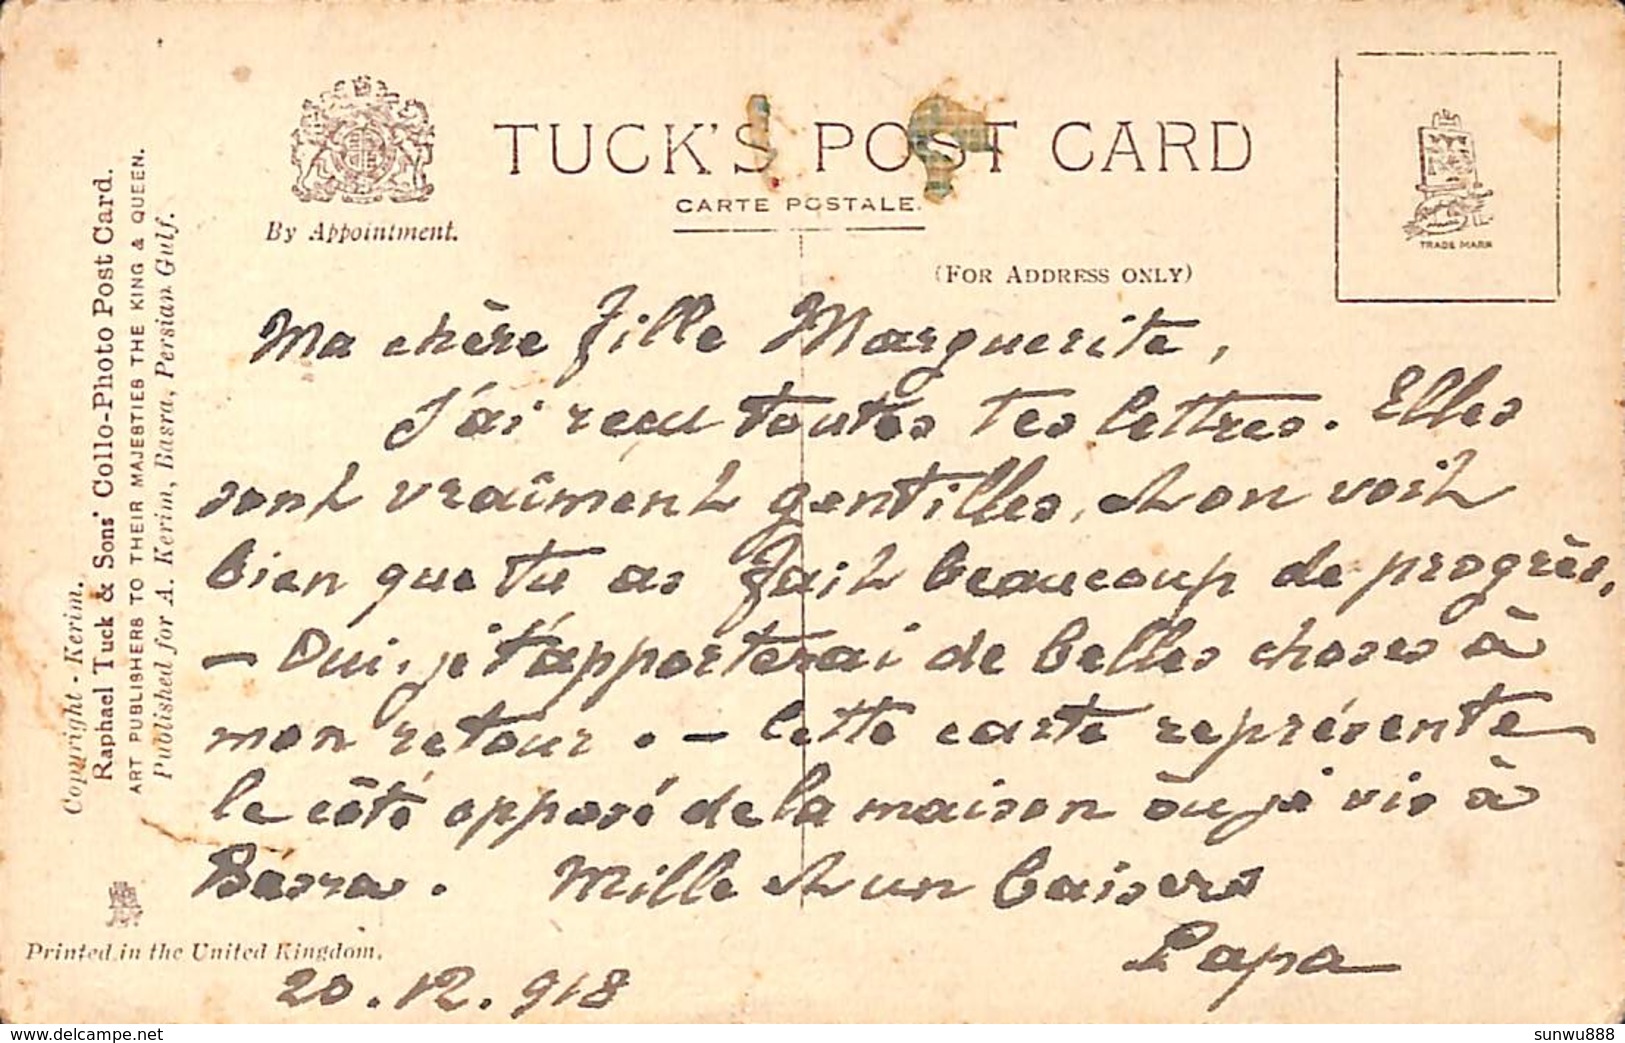 TUCK'S POST CARD
CARTE POSTALE.
By Appointment.
(FOR ADDRESS ONLY)
TRADE MARK
Copyright - Kerim.
Raphael Tuck & Sons' Collo-Photo Post Card.
ART PUBLISHERS TO THEIR MAJESTIES THE KING & QUEEN.
Published for A. Kerim, Basra, Persian Gulf.
Ma chère fille Marguerite,
J'ai reçu toutes tes lettres. Elles
sont vraîment gentilles, et on voit
bien que tu as fait beaucoup de progrès.
— Oui, je t'apporterai de belles choses à
mon retour. — Cette carte représente
le côté opposé de la maison où je vis à
Basra. Mille et un baisers
Papa
Printed in the United Kingdom.
20.12.918
sunwu888